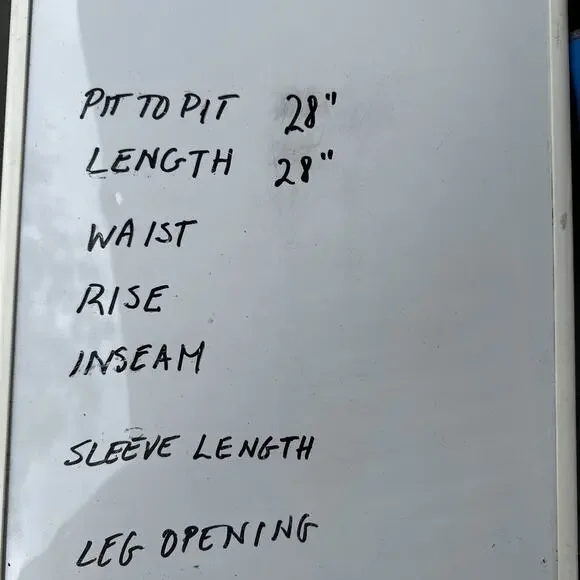 PIT TO PIT 28"
LENGTH 28"
WAIST
RISE
INSEAM
SLEEVE LENGTH
LEG OPENING